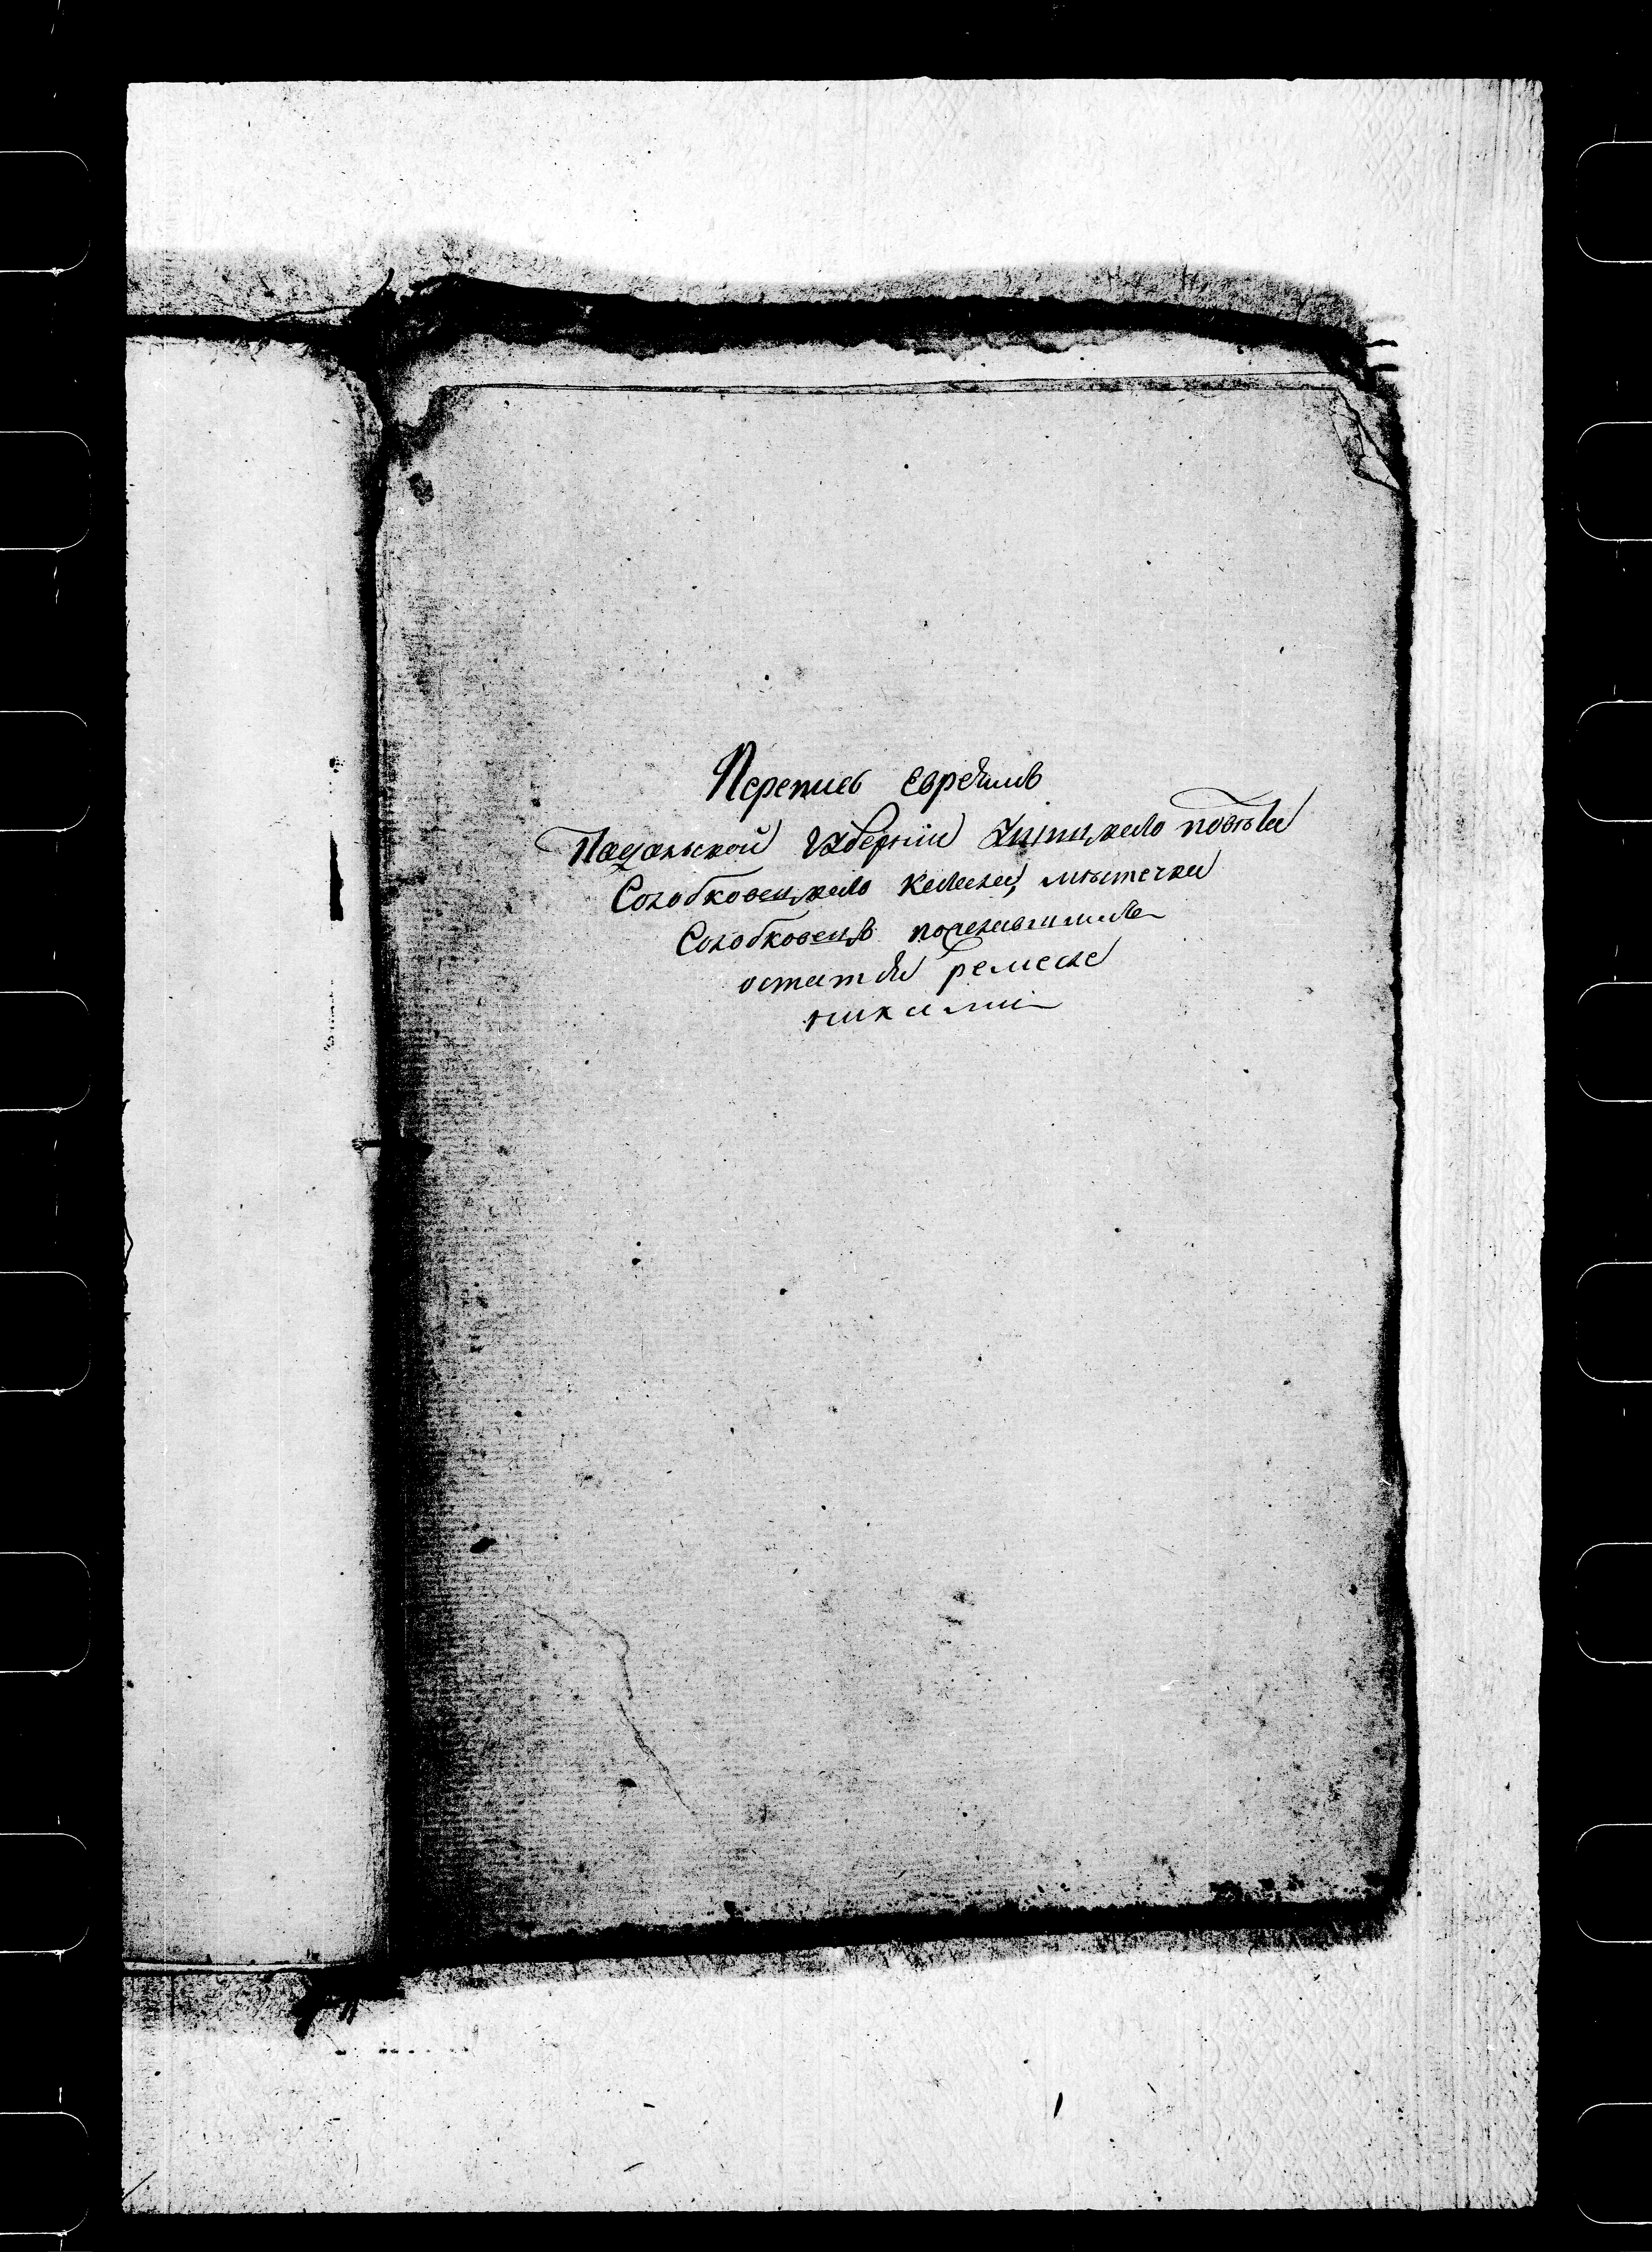 Перепись евреямъ
Падольской Губернiи Ушицкаго повѣта
Солобковецкаго кагала, мѣстечка
Солобковецъ пожелавшимъ
остатся ремесле
никами